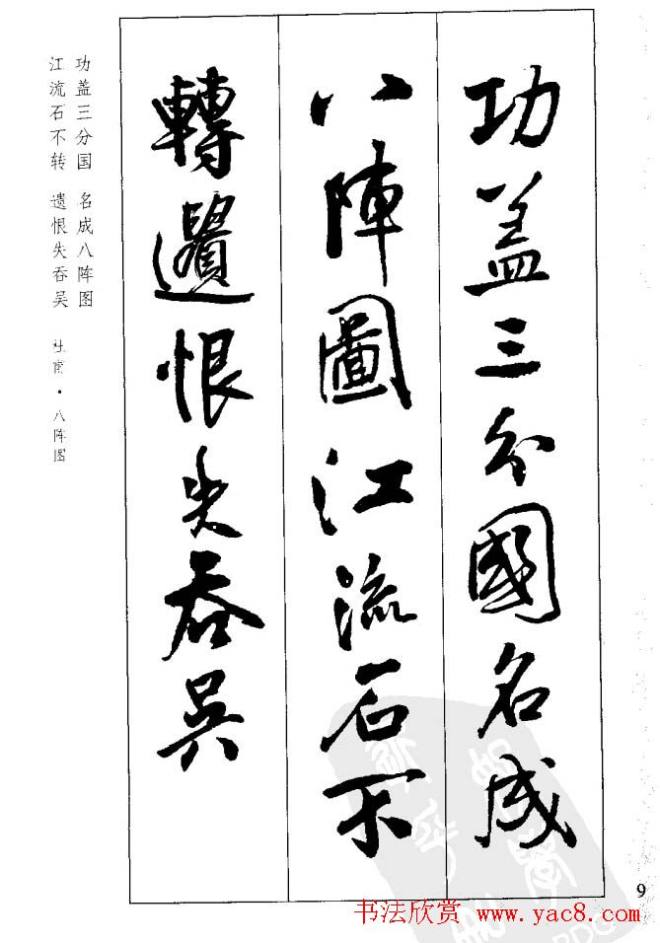 功蓋三分國名成
八陣圖江流石不
轉遺恨失吞吴
功盖三分国 名成八阵图
江流石不转 遗恨失吞吴 杜甫·八阵图
9
书法欣赏 www.yac8.com